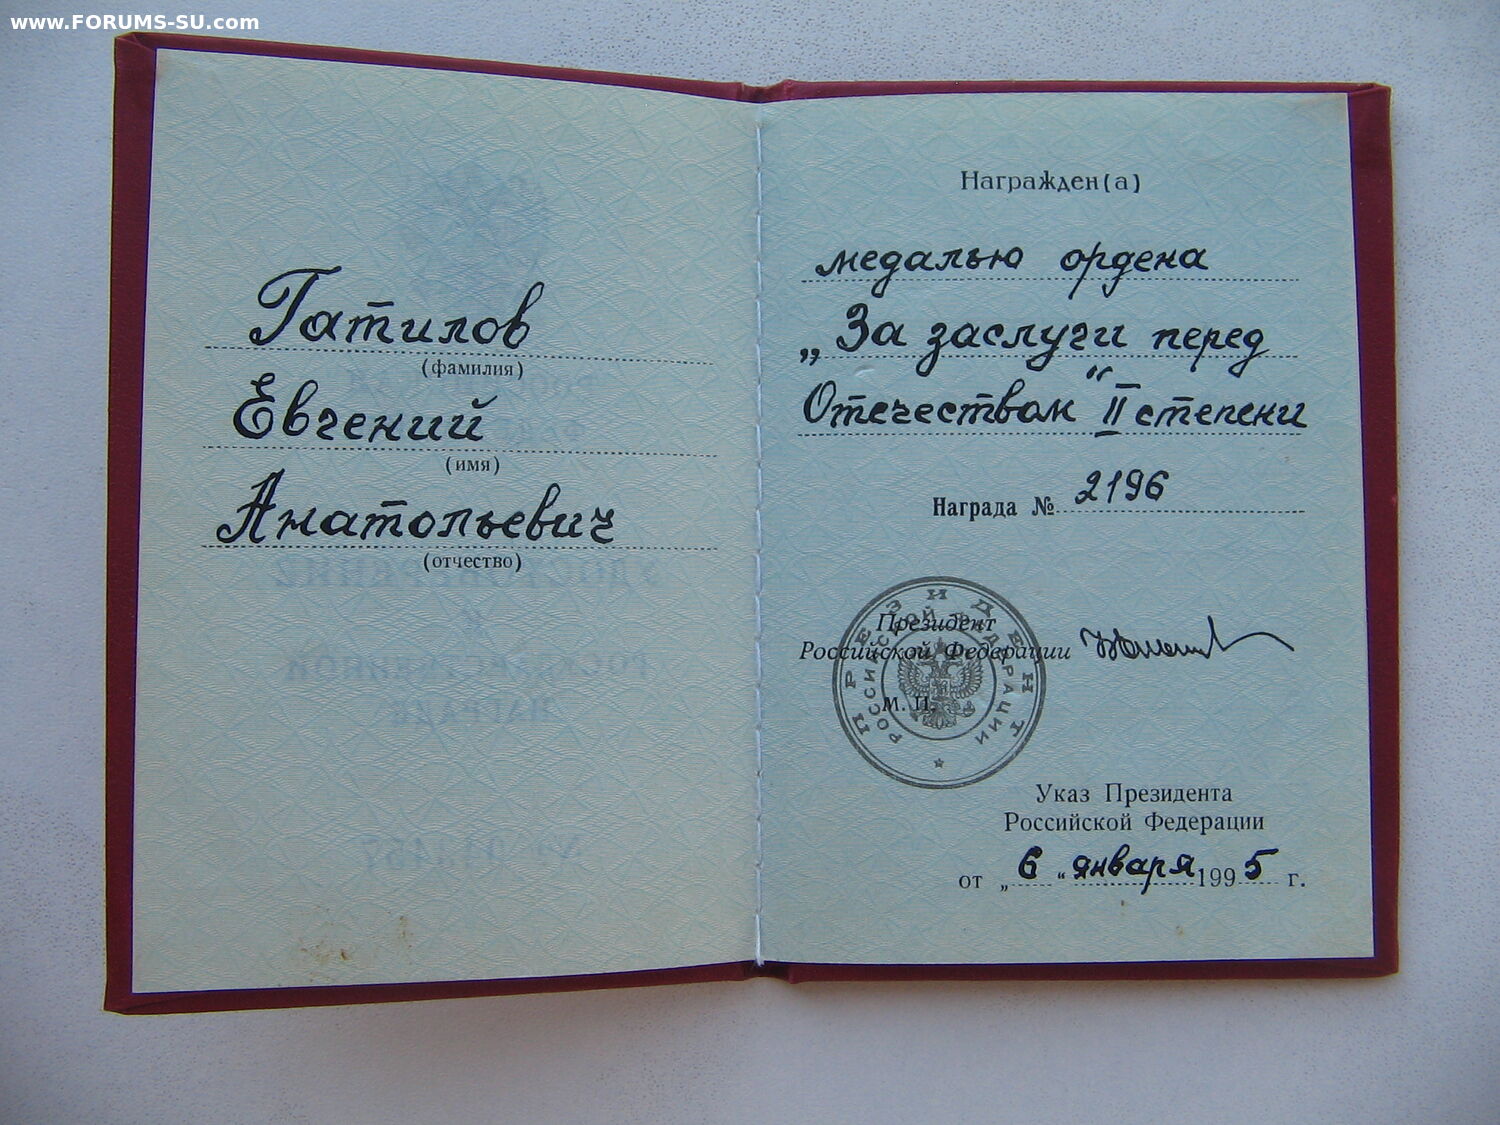 www.FORUMS-SU.com
Гатилов
(фамилия)
Евгений
(имя)
Анатольевич
(отчество)
Награжден(а)
медалью ордена
„За заслуги перед
Отечеством“ II степени
Награда № 2196
Президент
Российской Федерации
М. П.
ПРЕЗИДЕНТ
РОССИЙСКОЙ ФЕДЕРАЦИИ
Указ Президента
Российской Федерации
от „6“ января 1995 г.